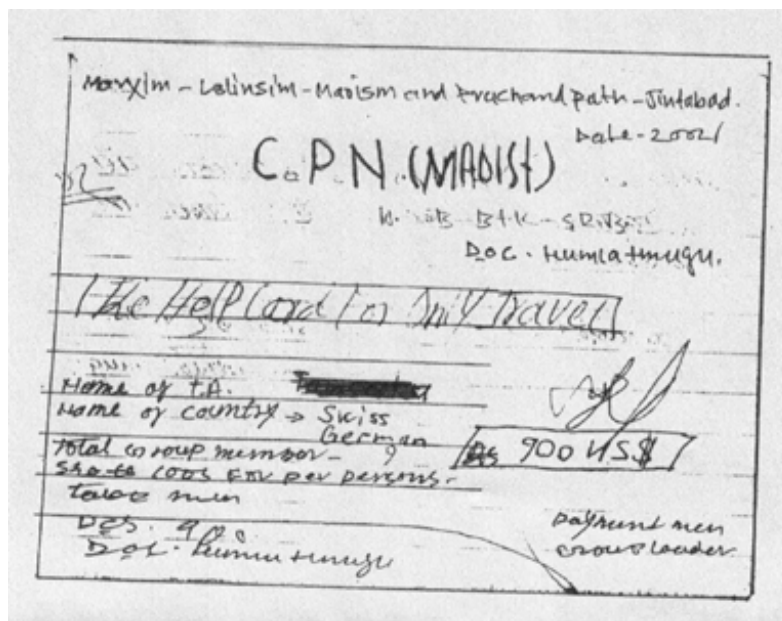 Marxim - Lelinsim - Maoism and Prachand path - Jintabad.
Date - 2002/
C.P.N. (MAOIST)
DOC. Humla + mugu.
The Help Card For Only Travel
Name of T.A.
Name of country → Swiss
German
Total Group member - 9
Rs 900 US$
per persons -
men
Des. 9
Doc. Humla + mugu
Payment men
Group leader